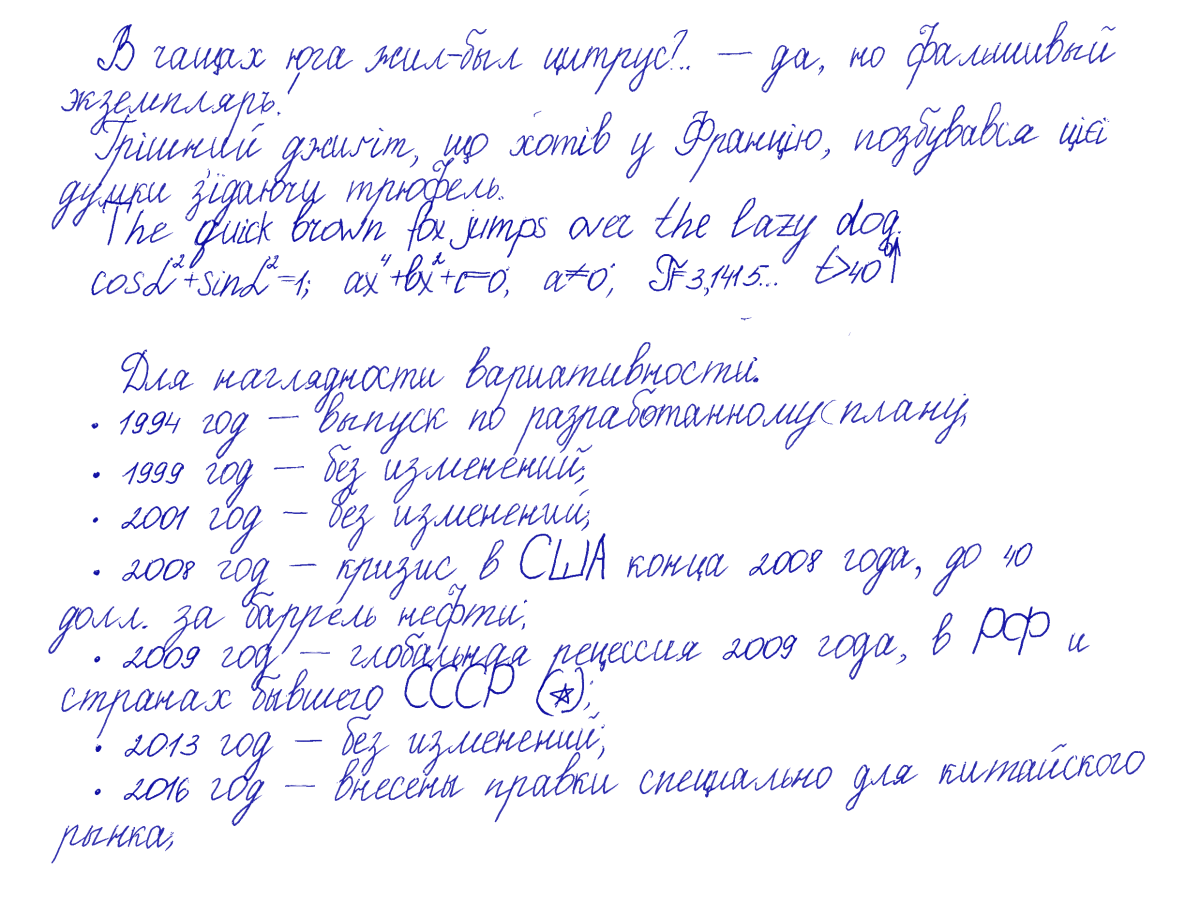 В чащах юга жил-был цитрус?.. — да, но фальшивый
экземпляръ.
Грішний джиґіт, що хотів у Францію, позбувався цієї
думки з'їдаючи трюфель.
The quick brown fox jumps over the lazy dog.
cosα²+sinα²=1; ax⁴+bx²+c=0; a≠0; π=3,1415... t>40°↑
Для наглядности вариативности.
• 1994 год — выпуск по разработанному плану;
• 1999 год — без изменений;
• 2001 год — без изменений;
• 2008 год — кризис в США конца 2008 года, до 40
долл. за баррель нефти;
• 2009 год — глобальная рецессия 2009 года, в РФ и
странах бывшего СССР (☆);
• 2013 год — без изменений;
• 2016 год — внесены правки специально для китайского
рынка;